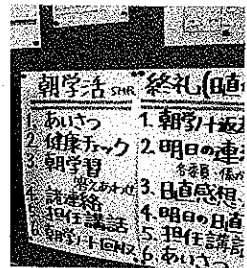 朝学活 SHR
1 あいさつ
2 健康チェック
3 朝学習
答えあわせ
4 諸連絡
5 担任講話
6 朝学パ回収
終礼(日直
1. 朝学パ返
2. 明日の連
3. 日直感想
4. 明日の日直
5. 担任講話
6. あいさつ